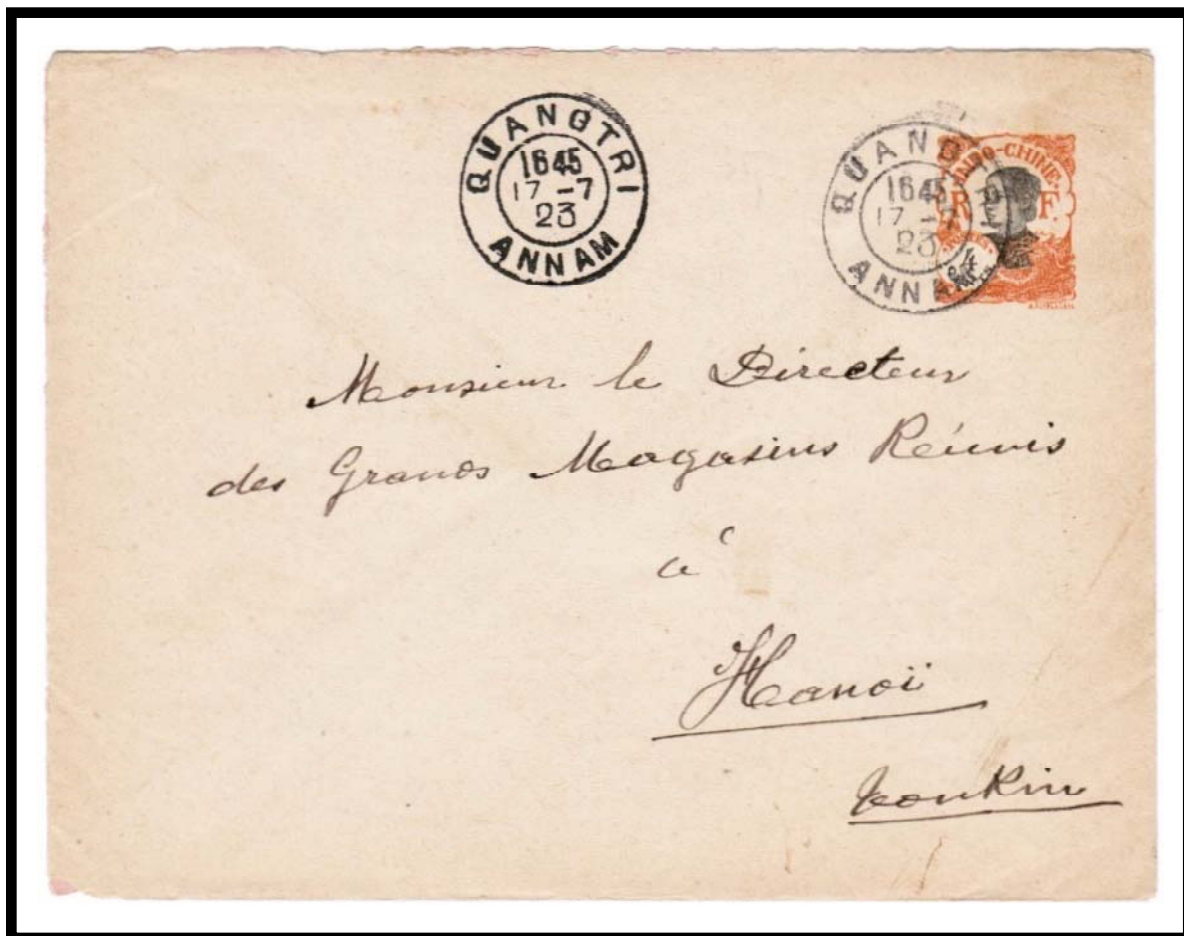 QUANGTRI
1645
17 -7
23
ANNAM
QUANGTRI
1645
17 -7
23
ANNAM
INDO-CHINE
R F
4
Monsieur le Directeur
des Grands Magasins Réunis
à
Hanoï
Tonkin